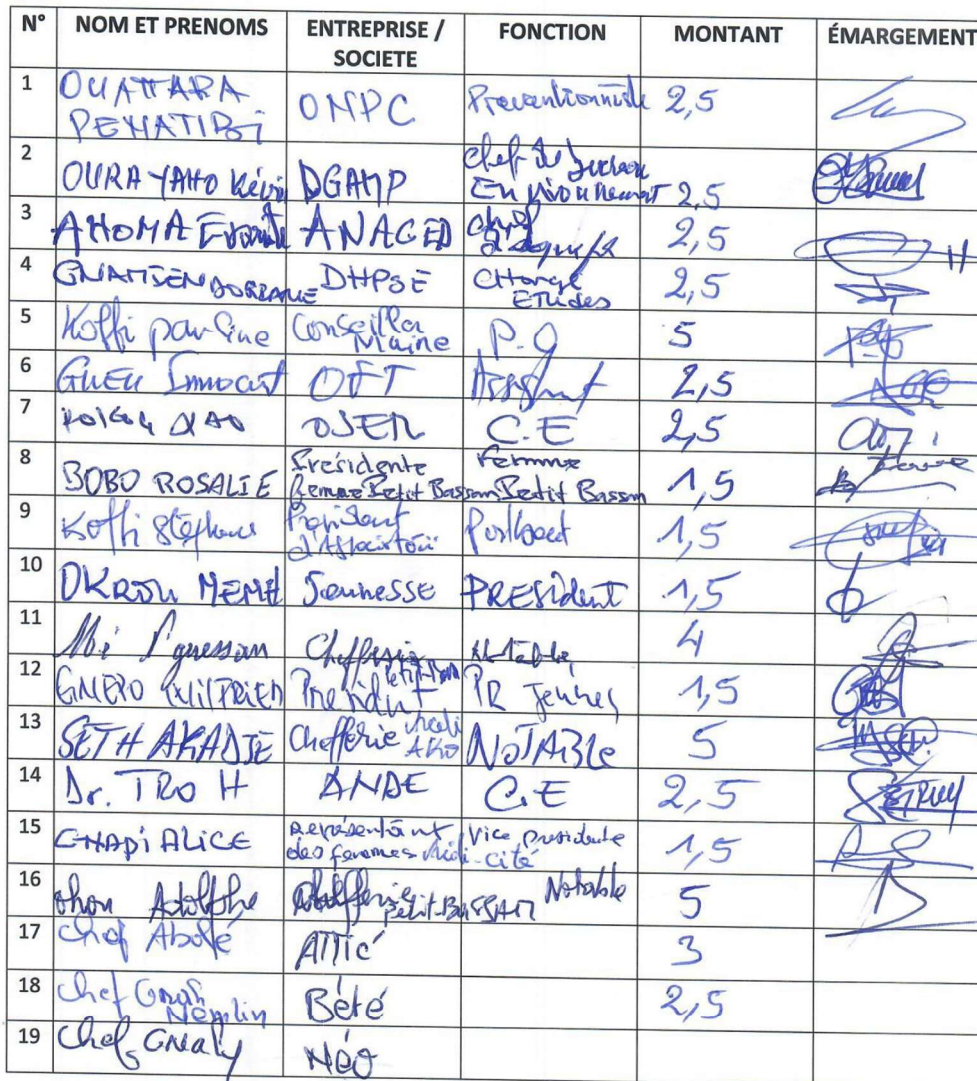 N° NOM ET PRENOMS ENTREPRISE / SOCIETE FONCTION MONTANT ÉMARGEMENT
1 OUATTARA ONPC Preventionniste 2,5
2 OURA YAHO Kévin DGAMP Chef de bureau Environnement 2,5
3 AHOMA ANAGED Chef d'équipe 2,5
4 DHPSE CHargé ETUdes 2,5
5 Koffi pauline Conseiller P.O 5
6 GUEU Innocent OFT Assistant 2,5
7 OSER C.E 2,5
8 BOBO ROSALIE Présidente femme Petit Bassam Femme Petit Bassam 1,5
9 Koffi Stéphane President 1,5
10 OKROU MEMEL Jeunesse PRESIdent 1,5
11 N'guessan Chefferie Notable 4
12 President PR Jeunes 1,5
13 SETH AKADJE Chefferie NOTABLe 5
14 Dr. TRO H ANDE C.E 2,5
15 ALICE Représentant des femmes Vice presidente 1,5
16 Adolphe Chefferie petit-BASSAM Notable 5
17 Chef Abolé ATTIé 3
18 Chef Nemlin Bété 2,5
19 Chef Gnaly Néo